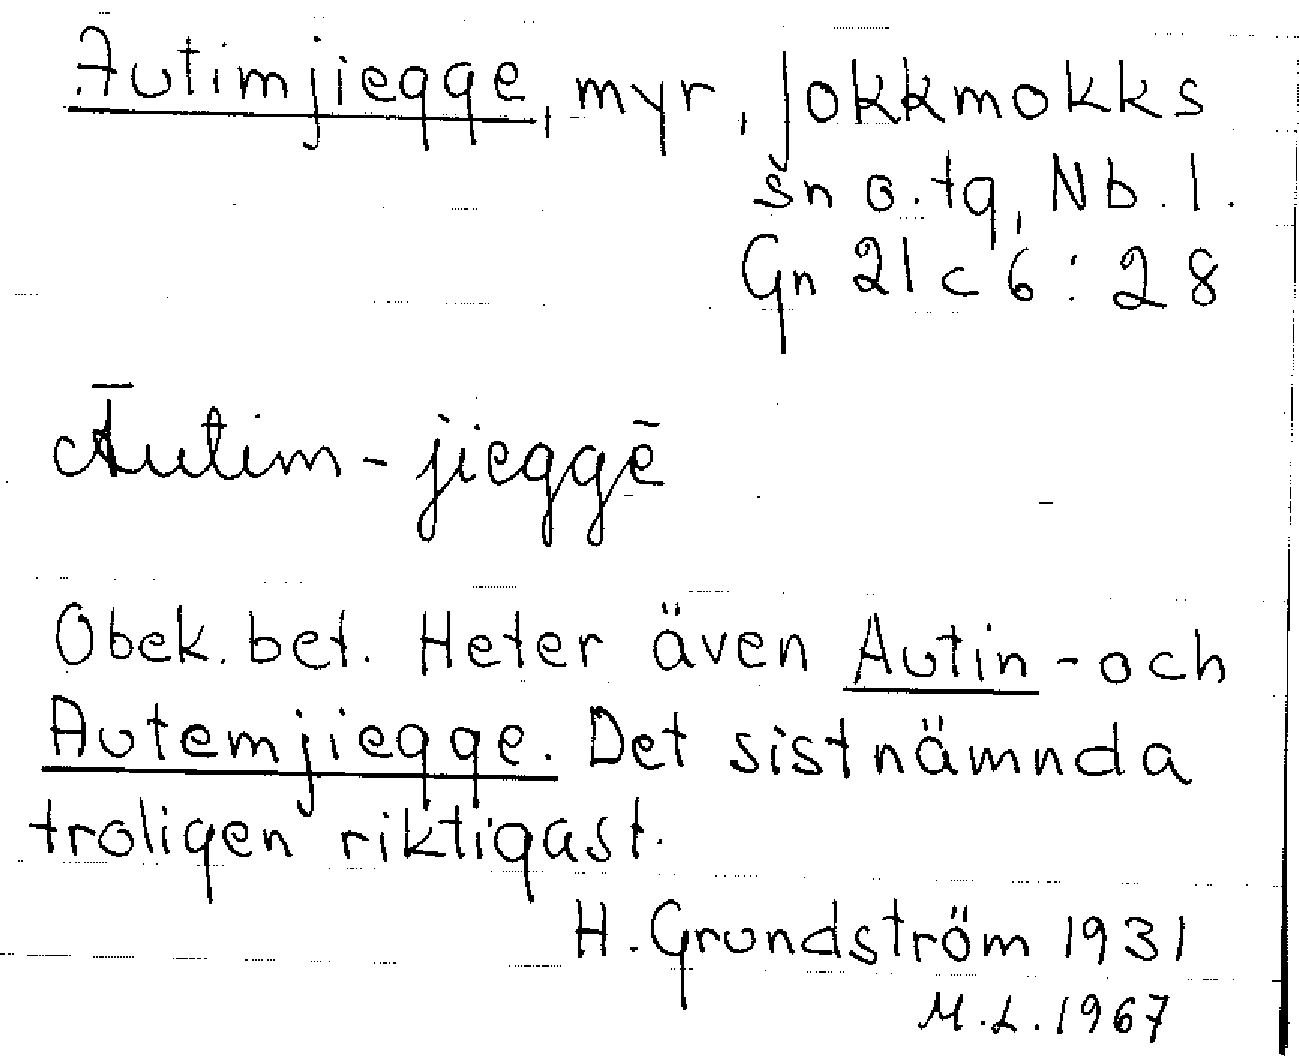 Autimjiegge, myr, Jokkmokks
sn o. tg, Nb. l.
Gn 21 c 6 : 28
Āutim-jieggē
Obek. bet. Heter även Autin- och
Autemjiegge. Det sistnämnda
troligen riktigast.
H. Grundström 1931
M.L. 1967